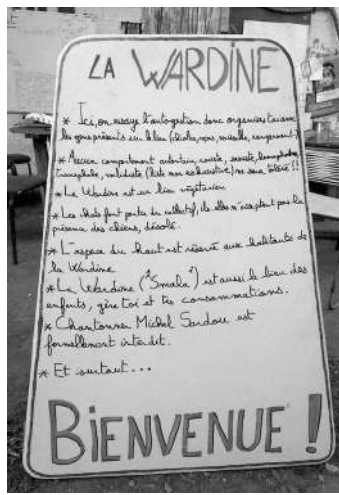 LA WARDINE
* Ici, on essaye l'autogestion donc organises toi avec
les gens présents sur le lieu (chiottes, repas, vaisselle, rangement)
* Aucun comportement autoritaire, raciste, sexiste, homophobe
transphobe, validiste (liste non exhaustive) ne sera toléré !!
* La Wardine est un lieu végétarien
* Les chats font partie du collectif, ils.elles n'acceptent pas la
présence des chiens, désolé.
* L'espace du haut est réservé aux habitants de
la Wardine
* La Wardine ("Smala") est aussi le lieu des
enfants, gère toi et tes consommations.
* Chantonner Michel Sardou est
formellement interdit.
* Et surtout...
BIENVENUE !